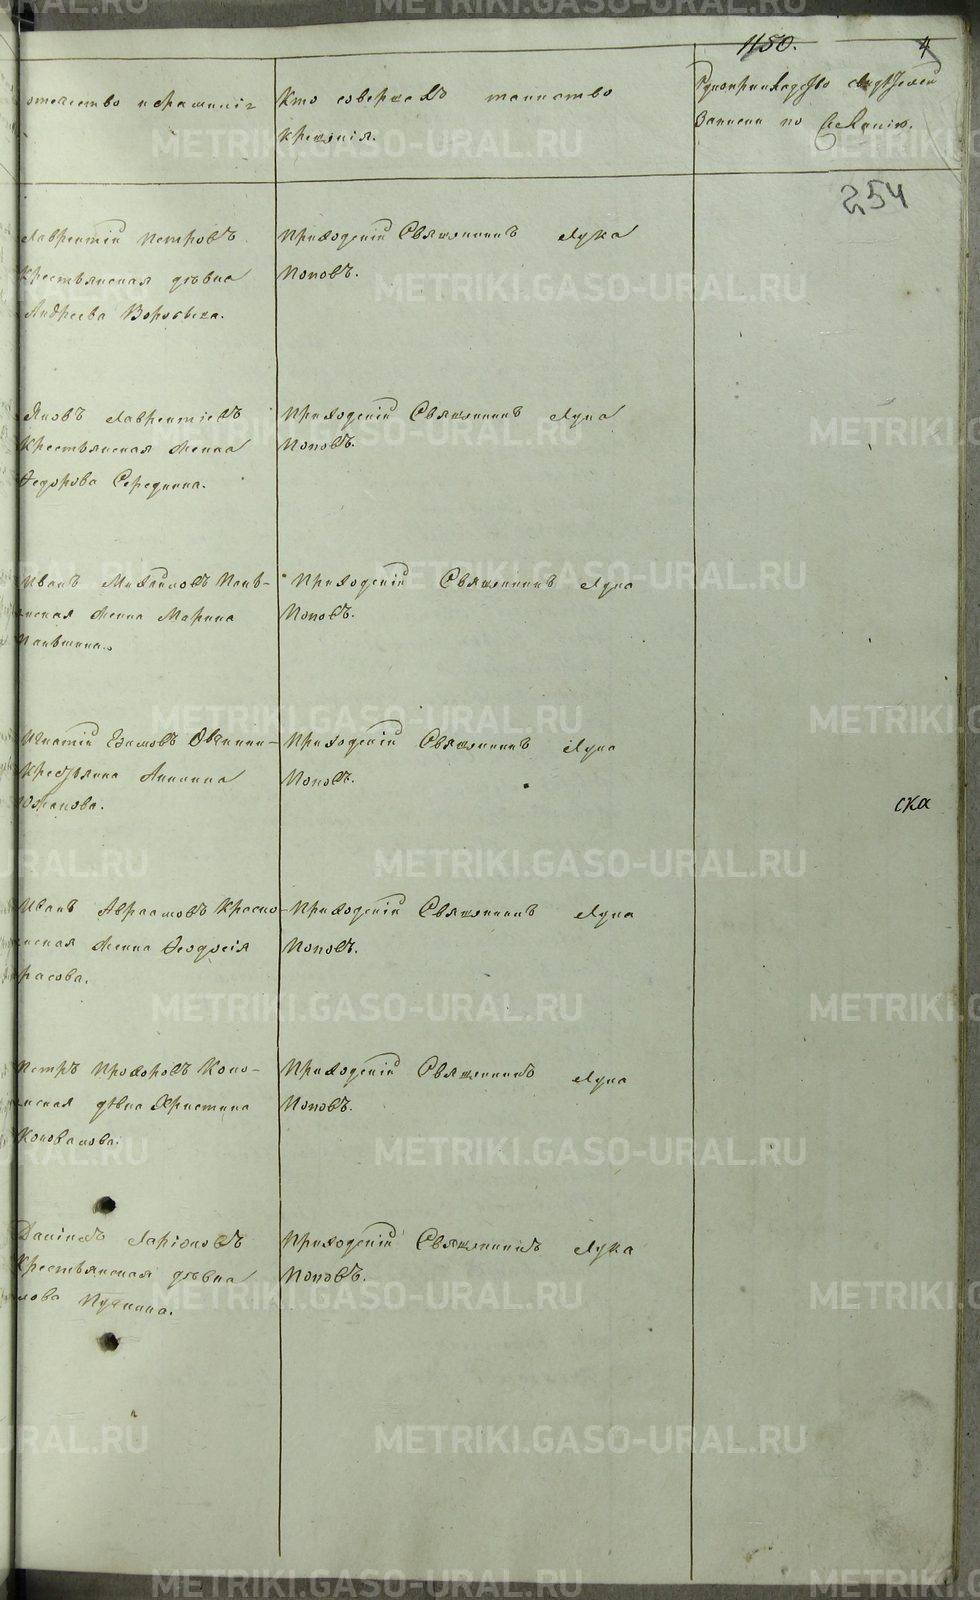 1180.
4
отечество и фамилія
Кто совершалъ таинство
крещенія.
Рукоприкладство свидѣтелей
записи по желанію.
254
Лаврентій Петровъ
Крестьянская дѣвка
Андреева Воробьева.
Приходскій Священникъ Лука
Поповъ.
Яковъ Лаврентіевъ
Крестьянская женка
Федорова Середкина.
Приходскій Священникъ Лука
Поповъ.
Иванъ Михайловъ Пань-
нская женка Марина
Паньшина.
Приходскій Священникъ Лука
Поповъ.
Игнатій Ефимовъ Овчинни-
Крестьянка Аникина
Южакова.
Приходскій Священникъ Лука
Поповъ.
ска
Иванъ Авраамовъ Красно-
нская женка Феодосія
расова.
Приходскій Священникъ Лука
Поповъ.
Петръ Прохоровъ Коно-
нская дѣвка Христина
Коновалова.
Приходскій Священникъ Лука
Поповъ.
Даніилъ Ларіоновъ
Крестьянская дѣвка
лова Пучкина.
Приходскій Священникъ Лука
Поповъ.
METRIKI.GASO-URAL.RU